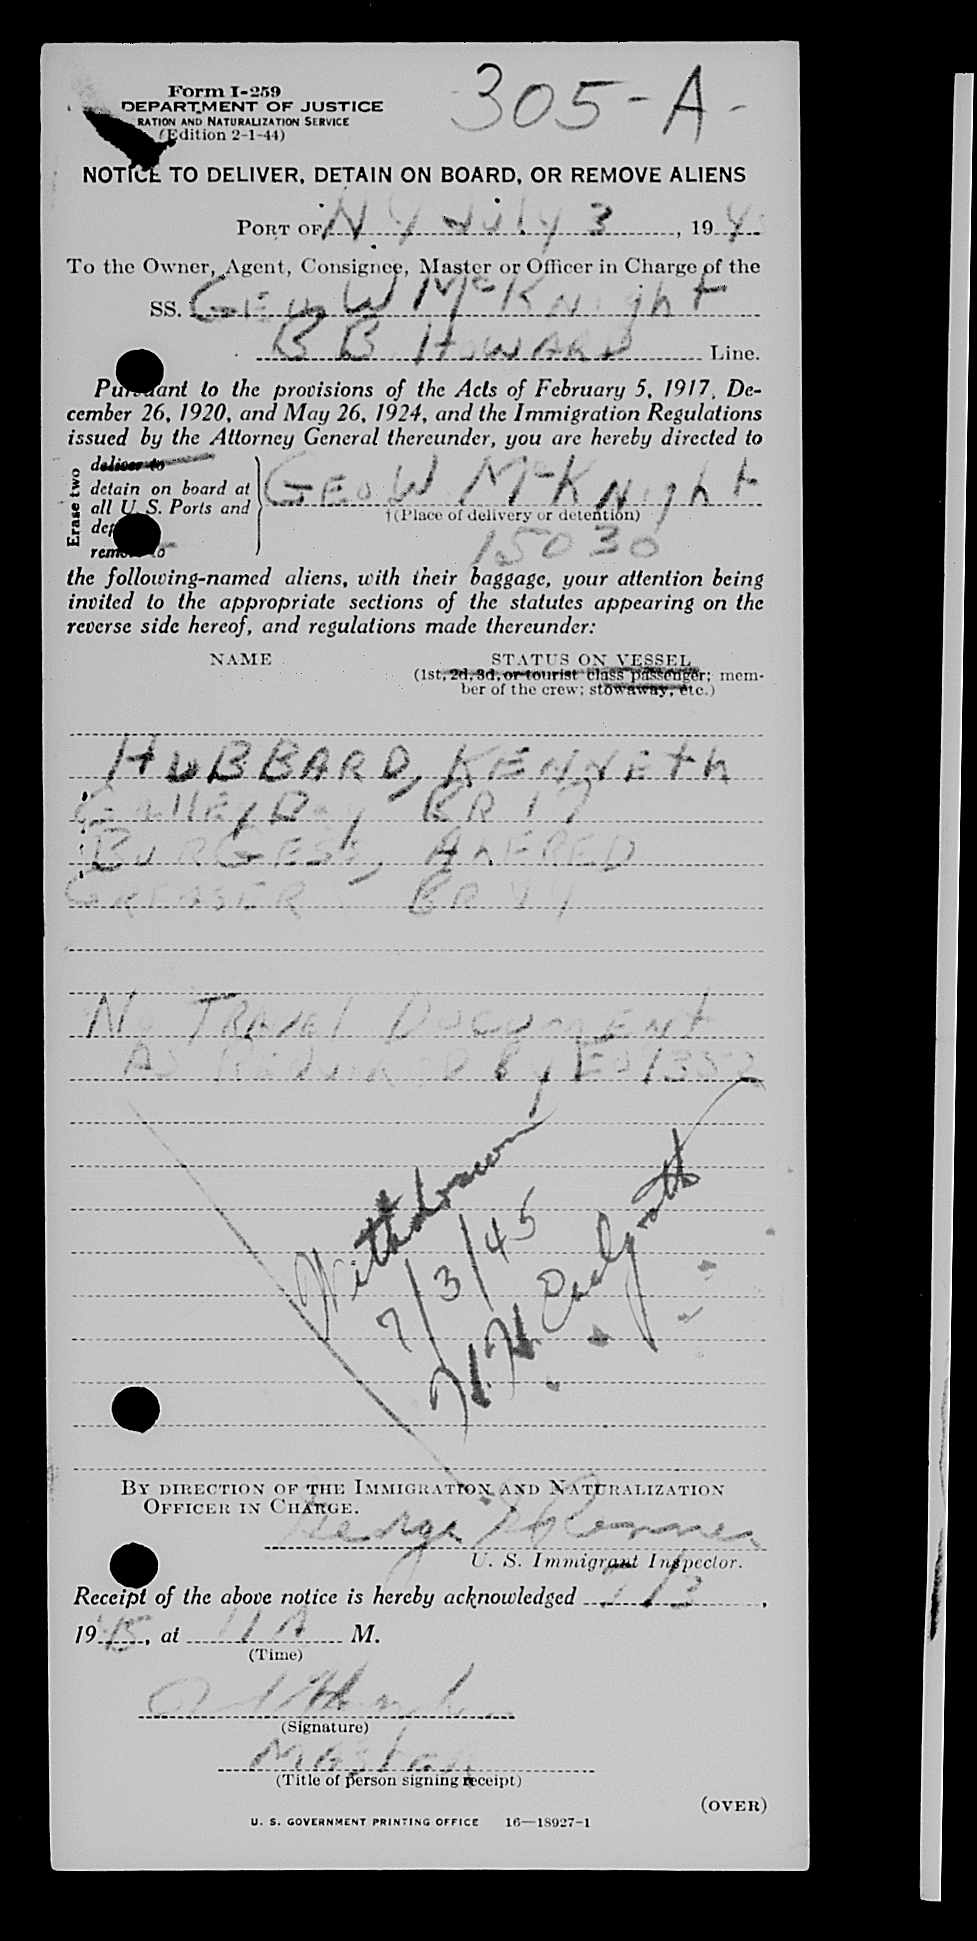 Form I-259
305-A-
DEPARTMENT OF JUSTICE
RATION AND NATURALIZATION SERVICE
(Edition 2-1-44)
NOTICE TO DELIVER, DETAIN ON BOARD, OR REMOVE ALIENS
PORT OF N Y July 3, 194
To the Owner, Agent, Consignee, Master or Officer in Charge of the
SS. GEO W McKNight
B B. HOWARD Line.
Pursuant to the provisions of the Acts of February 5, 1917, De-
cember 26, 1920, and May 26, 1924, and the Immigration Regulations
issued by the Attorney General thereunder, you are hereby directed to
Erase two
deliver to
detain on board at
all U. S. Ports and
remove to
GEO W. McKNight
†(Place of delivery or detention)
15030
the following-named aliens, with their baggage, your attention being
invited to the appropriate sections of the statutes appearing on the
reverse side hereof, and regulations made thereunder:
NAME
STATUS ON VESSEL
(1st, 2d, 3d, or tourist class passenger; mem-
ber of the crew; stowaway, etc.)
HUBBARD, KENNETH
GAllEy Boy BR 17
BURGESS, ALFRED
GREASER BR 44
No TRAVEl DOCUMENT
AS REQUIRED By
Withdrawn
7/3/45
BY DIRECTION OF THE IMMIGRATION AND NATURALIZATION
OFFICER IN CHARGE.
George
U. S. Immigrant Inspector.
Receipt of the above notice is hereby acknowledged 7/3,
1945, at 11 A M.
(Time)
(Signature)
Master
(Title of person signing receipt)
(OVER)
U. S. GOVERNMENT PRINTING OFFICE 16—18927-1